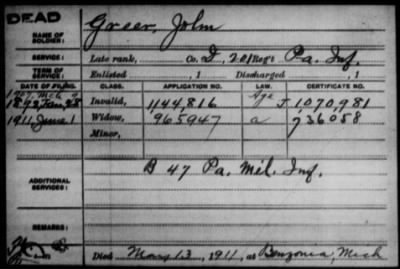 DEAD
NAME OF SOLDIER: Greer, John
SERVICE: Late rank, Co. D, 201 Reg't Pa. Inf.
TERM OF SERVICE: Enlisted , 1 Discharged , 1
DATE OF FILING. CLASS. APPLICATION NO. LAW. CERTIFICATE NO.
Invalid, 1144,816 Age 1,070,981
1911, June 1 Widow, 965947 a 736058
Minor,
ADDITIONAL SERVICES: B 47 Pa. Mil. Inf.
REMARKS:
Died May 13, 1911, at Benzonia, Mich